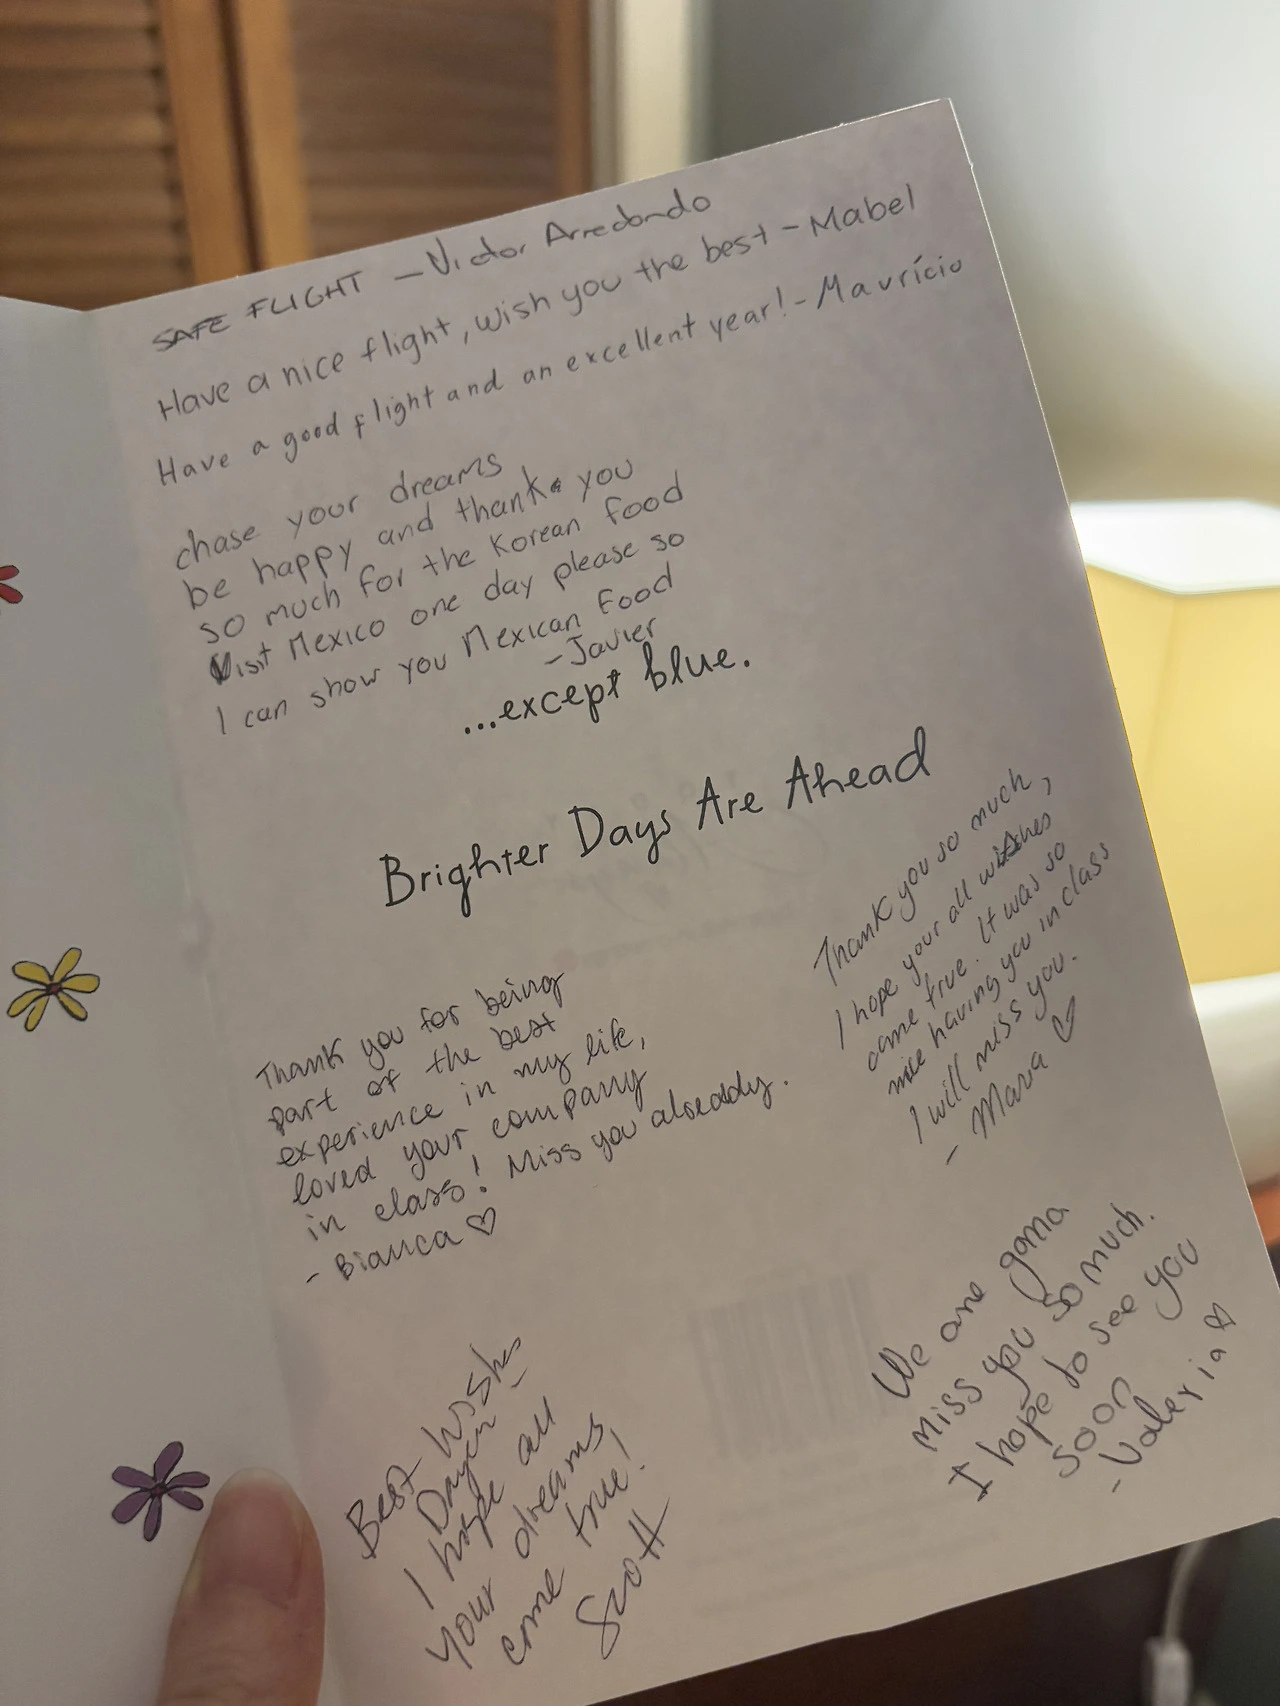 SAFE FLIGHT - Victor Arredondo
Have a nice flight, wish you the best - Mabel
Have a good flight and an excellent year! - Maurício
chase your dreams
be happy and thank you
so much for the Korean food
Visit Mexico one day please so
I can show you Mexican Food
- Javier
...except blue.
Brighter Days Are Ahead
Thank you so much,
I hope your all wishes
came true. It was so
nice having you in class
I will miss you.
- Mara ♡
Thank you for being
part of the best
experience in my life,
loved your company
in class! Miss you alreaddy.
- Bianca ♡
We are gonna
miss you so much.
I hope to see you
soon
- Valeria ♡
Best
I hope all
your dreams
come true!
Scott